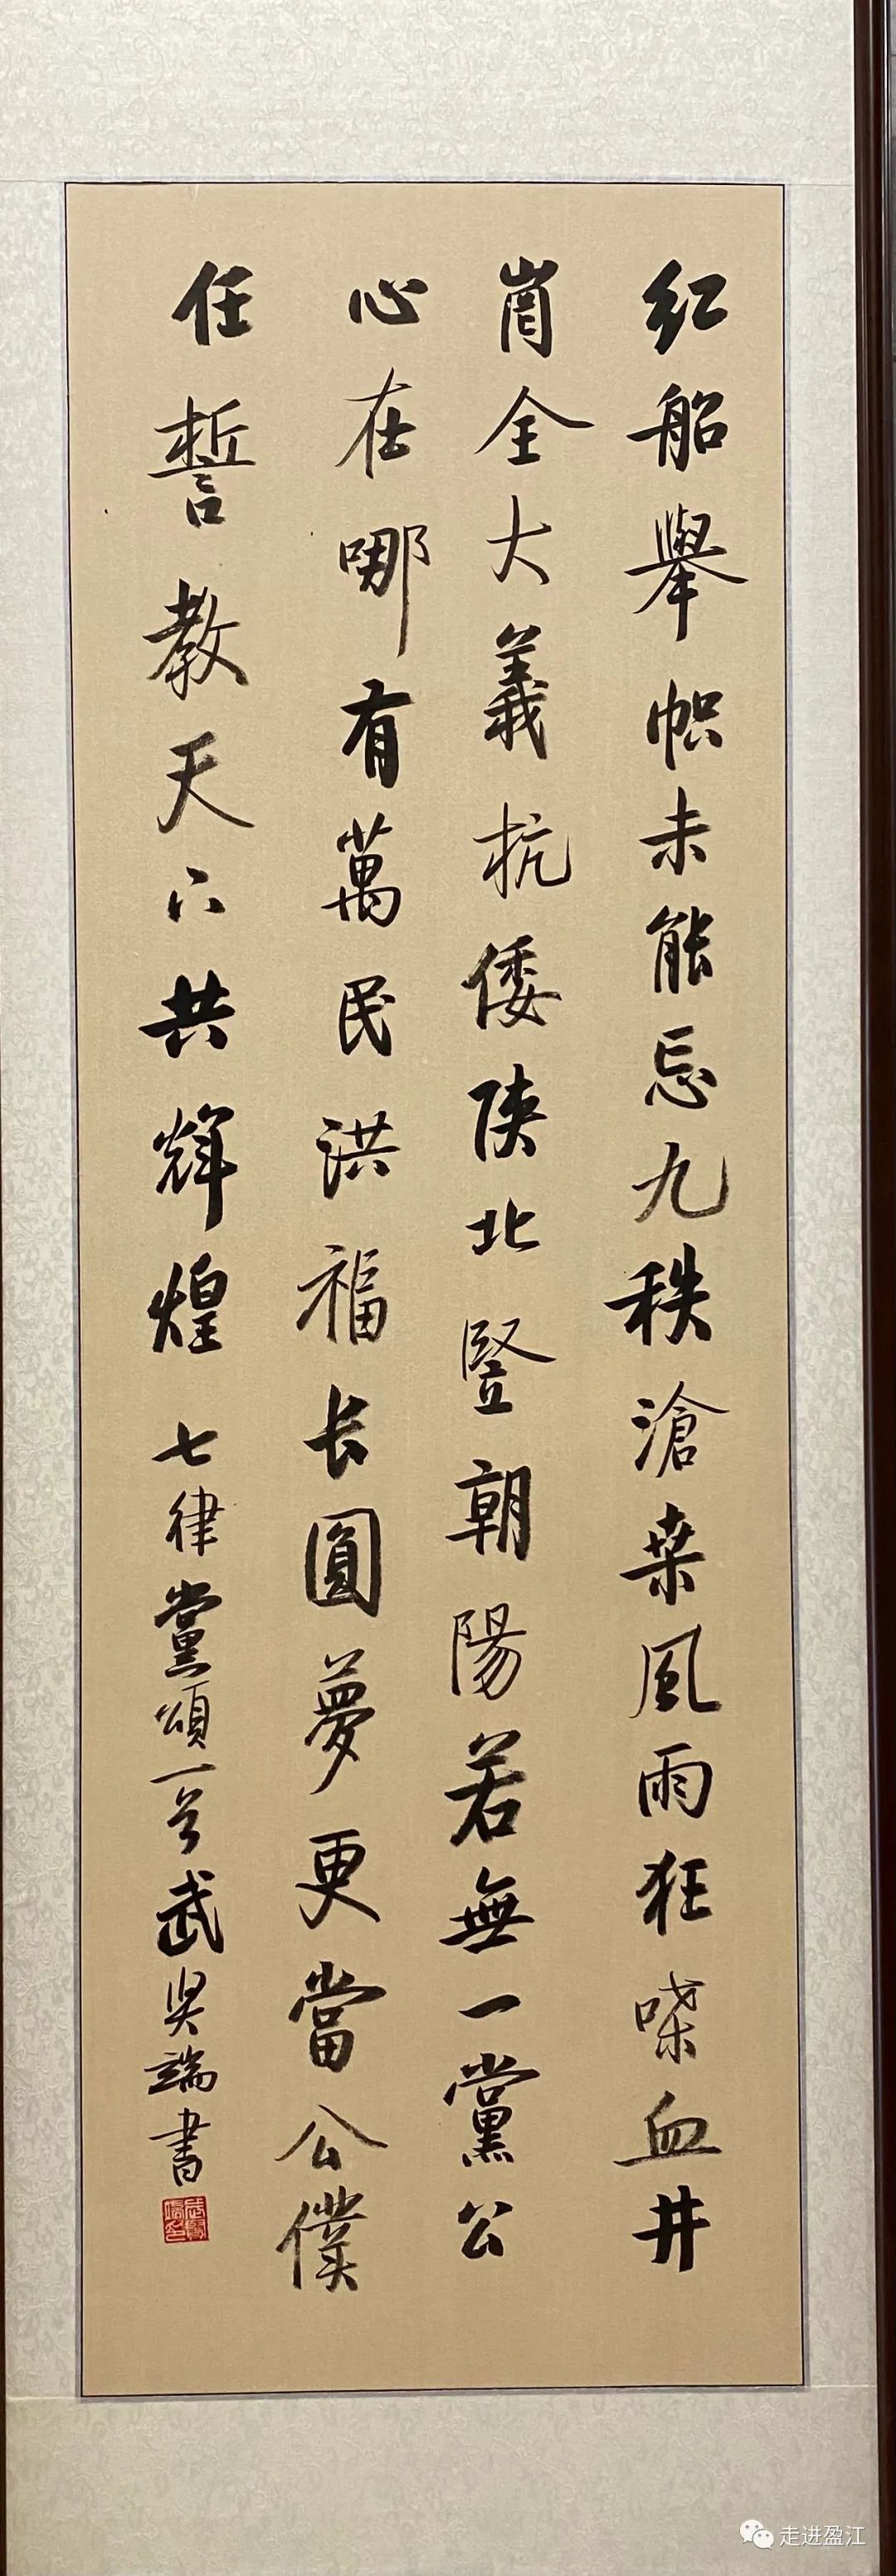 红船舉帜未能忘九秩滄桑風雨狂喋血井
崗全大義抗倭陕北竪朝陽若無一黨公
心在哪有萬民洪福长圓夢更當公僕
任誓教天下共辉煌
七律黨頌一首武昊端書
走进盈江